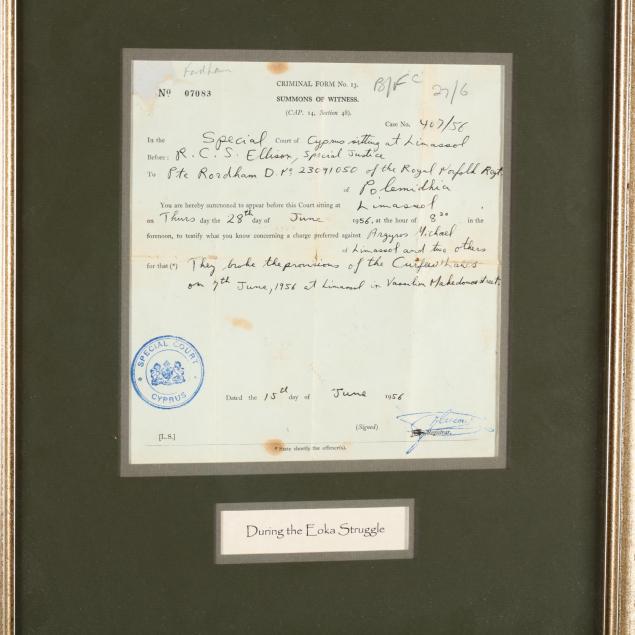 Fordham
CRIMINAL FORM No. 13.
B/F C 27/6
No 07083
SUMMONS OF WITNESS.
(CAP. 14, Section 48).
Case No. 407/56
In the Special Court of Cyprus sitting at Limassol
Before: R.C.S. Ellison, Special Justice
To Pte Rordham D. No 23091050 of the Royal Norfolk Regt.
of Polemidhia
You are hereby summoned to appear before this Court sitting at Limassol
on Thurs day the 28th day of June 1956, at the hour of 8 30 in the
forenoon, to testify what you know concerning a charge preferred against Argyros Michael
of Limassol and two others
for that (*) They broke the provisions of the Curfew Laws
on 7th June, 1956 at Limassol in Vassilios Makedonos street.
SPECIAL COURT
CYPRUS
Dated the 15th day of June 1956
(Signed)
Registrar.
[L.S.]
* State shortly the offence(s).
During the Eoka Struggle